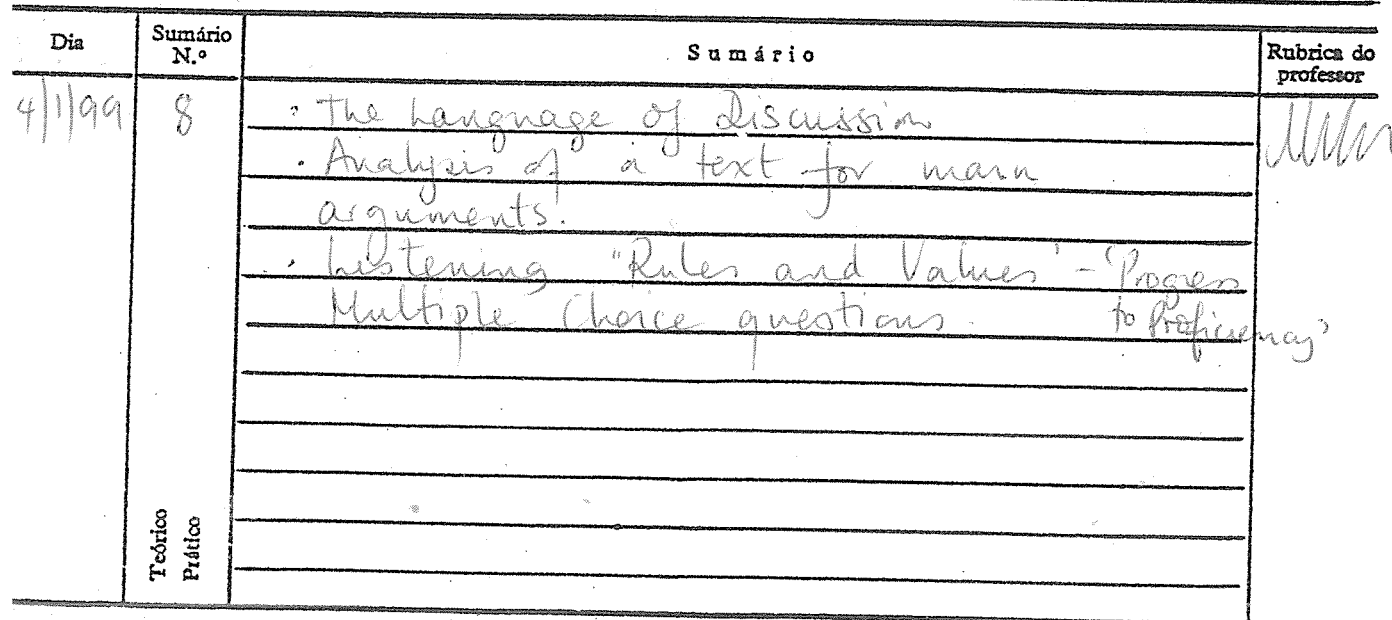 Dia Sumário N.º Sumário Rubrica do professor
4/1/99 8 · The Language of Discussion
· Analysis of a text for main
arguments.
· Listening "Rules and Values' - 'Progress
Multiple Choice questions. to Proficiency'
Teórico
Prático